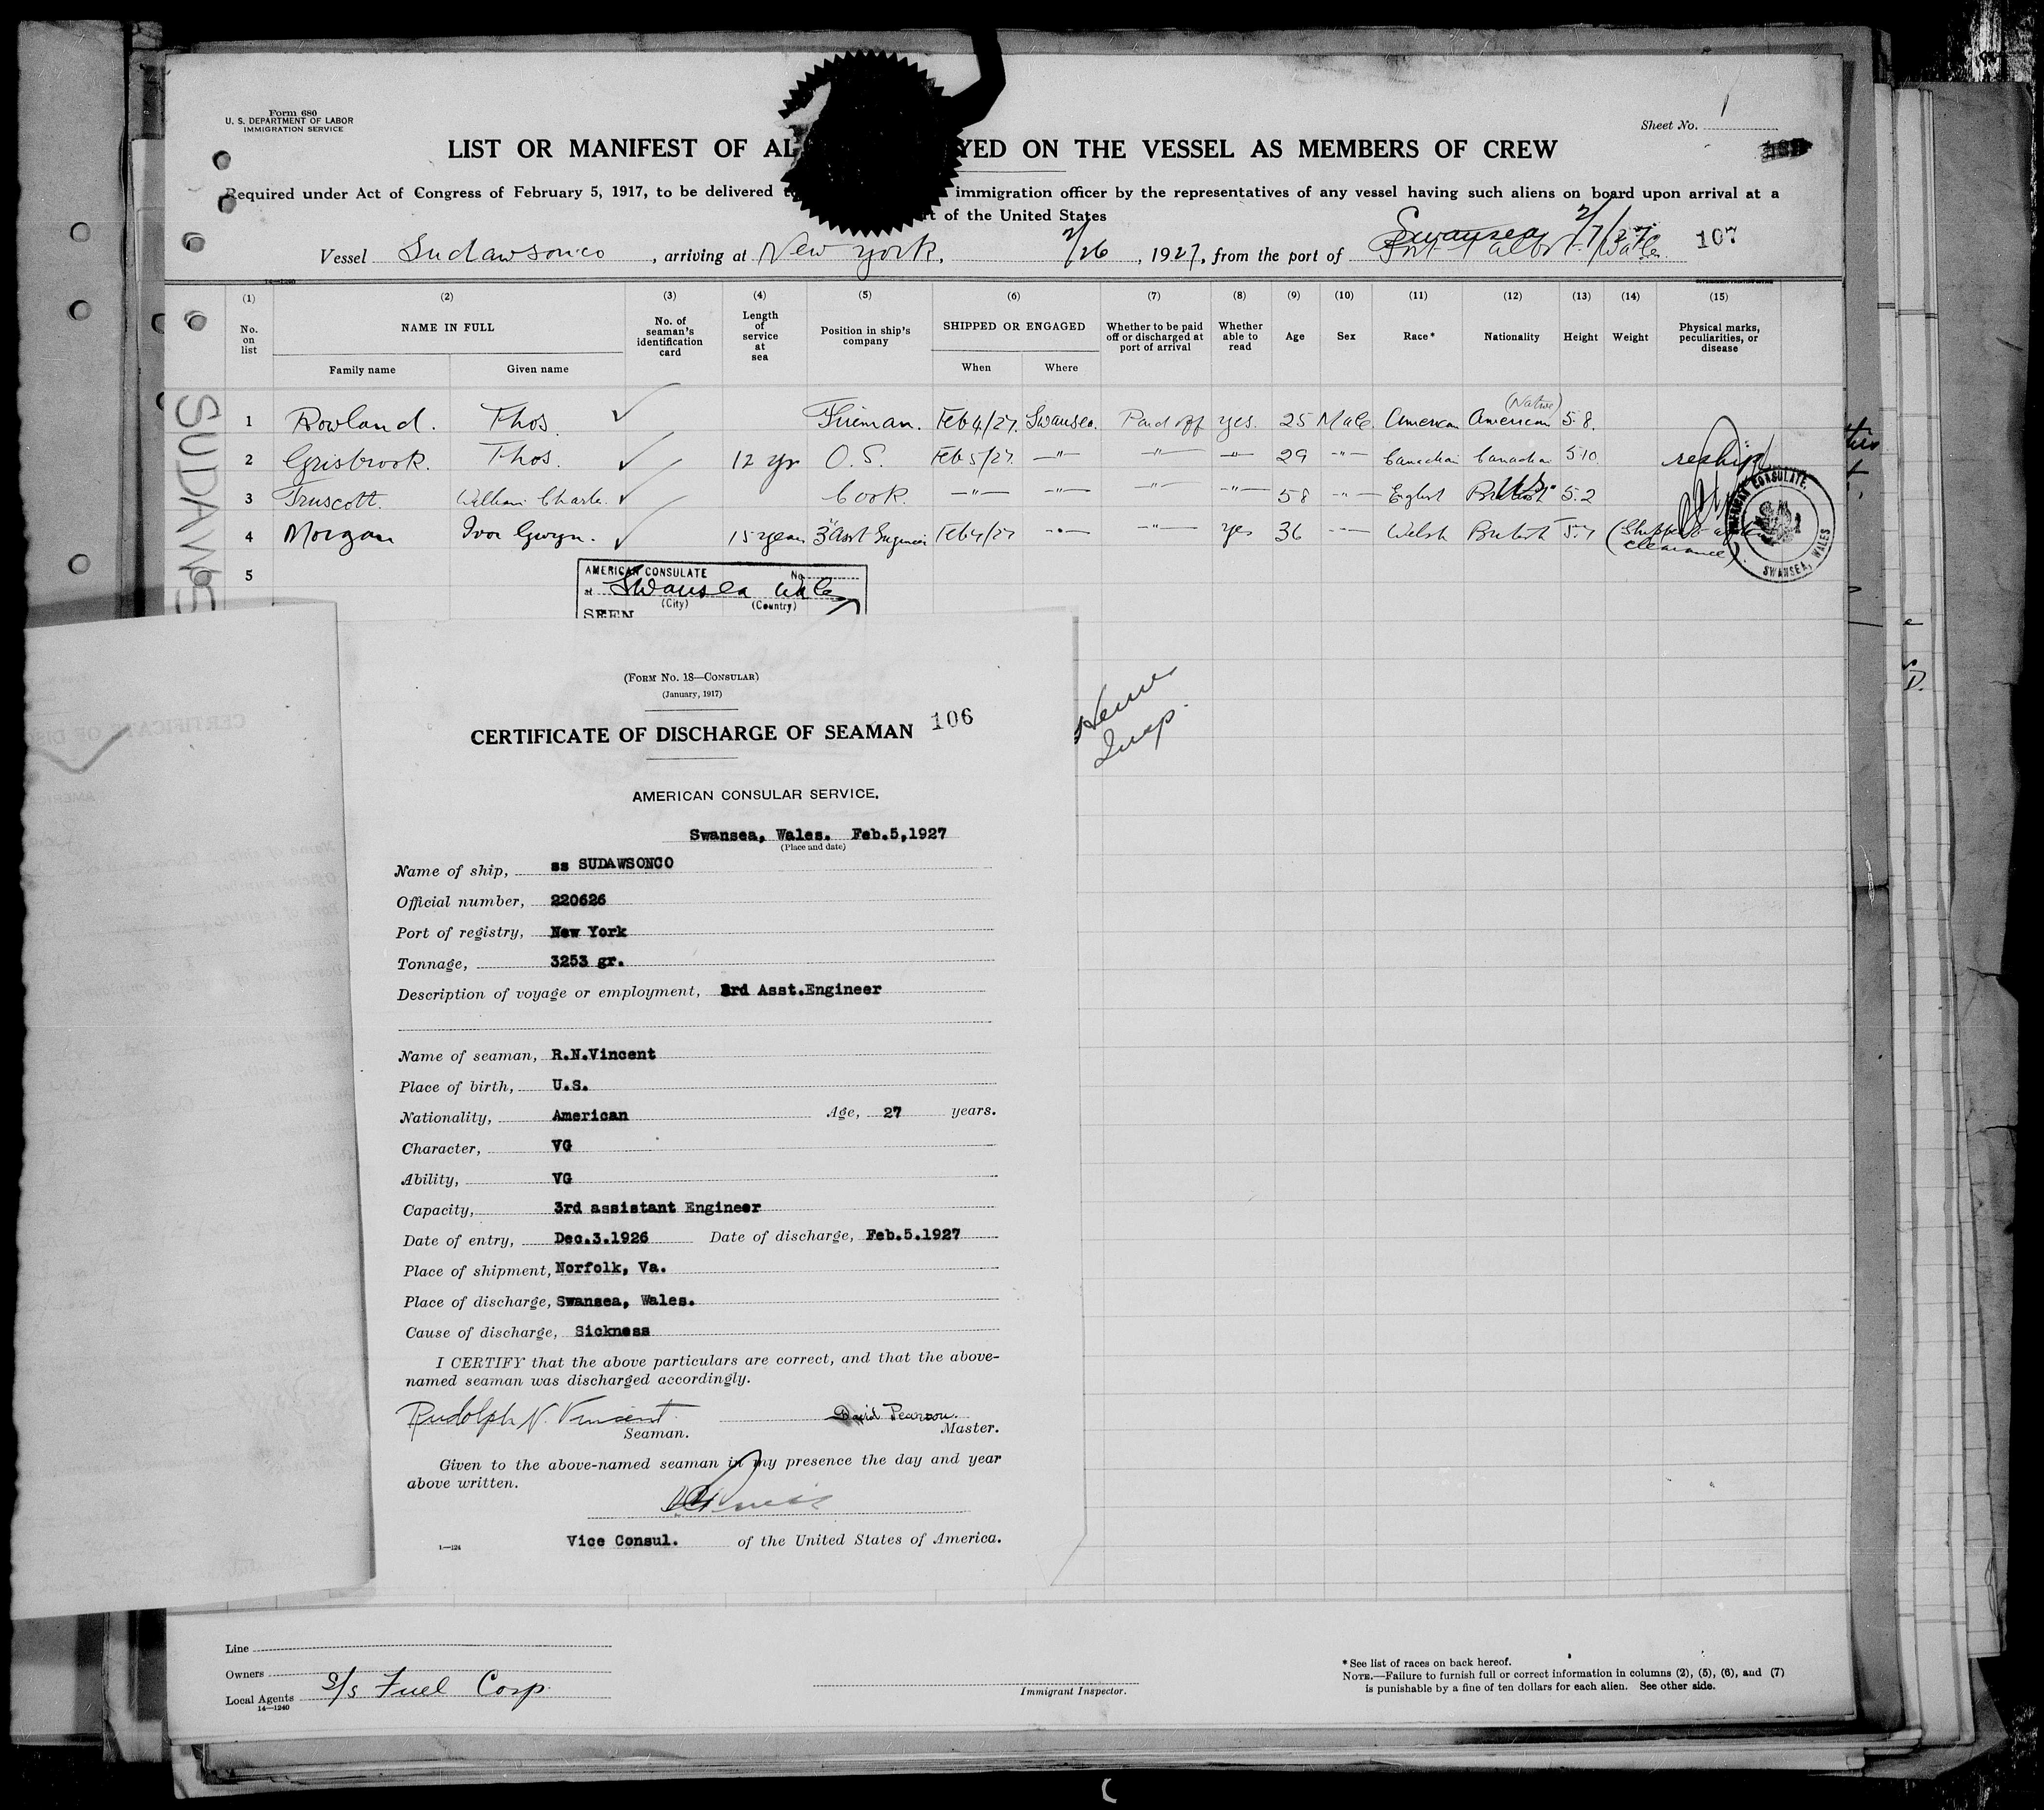 Form 680
U. S. DEPARTMENT OF LABOR
IMMIGRATION SERVICE
Sheet No. 1
LIST OR MANIFEST OF AL YED ON THE VESSEL AS MEMBERS OF CREW
Required under Act of Congress of February 5, 1917, to be delivered immigration officer by the representatives of any vessel having such aliens on board upon arrival at a
of the United States
Vessel Sudawsonco, arriving at New York, 2/26, 1927, from the port of Swansea 2/7/27. Port Talbot. Wales. 107
14—1240
(1) (2) (3) (4) (5) (6) (7) (8) (9) (10) (11) (12) (13) (14) (15)
No. on list
NAME IN FULL
Family name
Given name
No. of seaman's identification card
Length of service at sea
Position in ship's company
SHIPPED OR ENGAGED
When
Where
Whether to be paid off or discharged at port of arrival
Whether able to read
Age
Sex
Race*
Nationality
Height
Weight
Physical marks, peculiarities, or disease
1 Rowland. Thos. Fireman. Feb 4/27. Swansea. Paid off yes. 25 Male. American (Native) American 5.8.
2 Grisbrook. Thos. 12 yr O.S. Feb 5/27. —"— —"— —"— 29 —"— Canadian Canadian 5.10. reship
3 Truscott. William Charls. Cook. —"— —"— —"— —"— 58 —"— English British U.S. 5.2
4 Morgan Ivor Gwyn. 15 years 3rd Asst Engineer Feb 4/27 —"— —"— yes 36 —"— Welsh British 5.7 (Shipped after clearance).
5
SUDAWS
AMERICAN CONSULATE No.
at Swansea Wales
(City) (Country)
SEEN
AMERICAN CONSULATE.
SWANSEA, WALES
Insp.
(FORM No. 18—CONSULAR)
(January, 1917)
CERTIFICATE OF DISCHARGE OF SEAMAN 106
AMERICAN CONSULAR SERVICE.
Swansea, Wales. Feb.5,1927
(Place and date)
Name of ship, ss SUDAWSONCO
Official number, 220626
Port of registry, New York
Tonnage, 3253 gr.
Description of voyage or employment, 3rd Asst.Engineer
Name of seaman, R.N.Vincent
Place of birth, U.S.
Nationality, American Age, 27 years.
Character, VG
Ability, VG
Capacity, 3rd assistant Engineer
Date of entry, Dec.3.1926 Date of discharge, Feb.5.1927
Place of shipment, Norfolk, Va.
Place of discharge, Swansea, Wales.
Cause of discharge, Sickness
I CERTIFY that the above particulars are correct, and that the above-
named seaman was discharged accordingly.
Rudolph N. Vincent David Pearson.
Seaman. Master.
Given to the above-named seaman in my presence the day and year
above written.
1—124
Vice Consul. of the United States of America.
Line
Owners
Local Agents S/s Fuel Corp.
14—1240
Immigrant Inspector.
* See list of races on back hereof.
NOTE.—Failure to furnish full or correct information in columns (2), (5), (6), and (7)
is punishable by a fine of ten dollars for each alien. See other side.